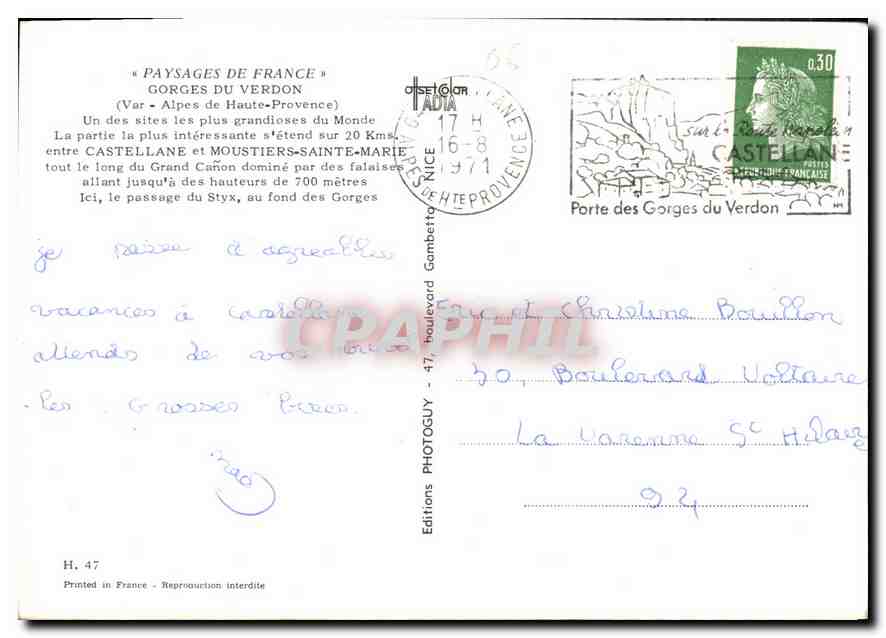 « PAYSAGES DE FRANCE »
GORGES DU VERDON
(Var - Alpes de Haute-Provence)
Un des sites les plus grandioses du Monde
La partie la plus intéressante s'étend sur 20 Kms.
entre CASTELLANE et MOUSTIERS-SAINTE-MARIE
tout le long du Grand Cañon dominé par des falaises
allant jusqu'à des hauteurs de 700 mètres
Ici, le passage du Styx, au fond des Gorges
je passe d'agréables
vacances à Castellane
attends de vos
Les Grosses bises.
H. 47
Printed in France - Reproduction interdite
Editions PHOTOGUY - 47, boulevard Gambetta NICE
offset color
ADIA
66
CASTELLANE
17 H
16-8
1971
ALPES DE HTE PROVENCE
sur la Route Napoléon
CASTELLANE
Porte des Gorges du Verdon
0,30
POSTES
REPUBLIQUE FRANÇAISE
Eric et Christine Bouillon
30, Boulevard Voltaire
La Varenne St Hilaire
94
CPAPHIL